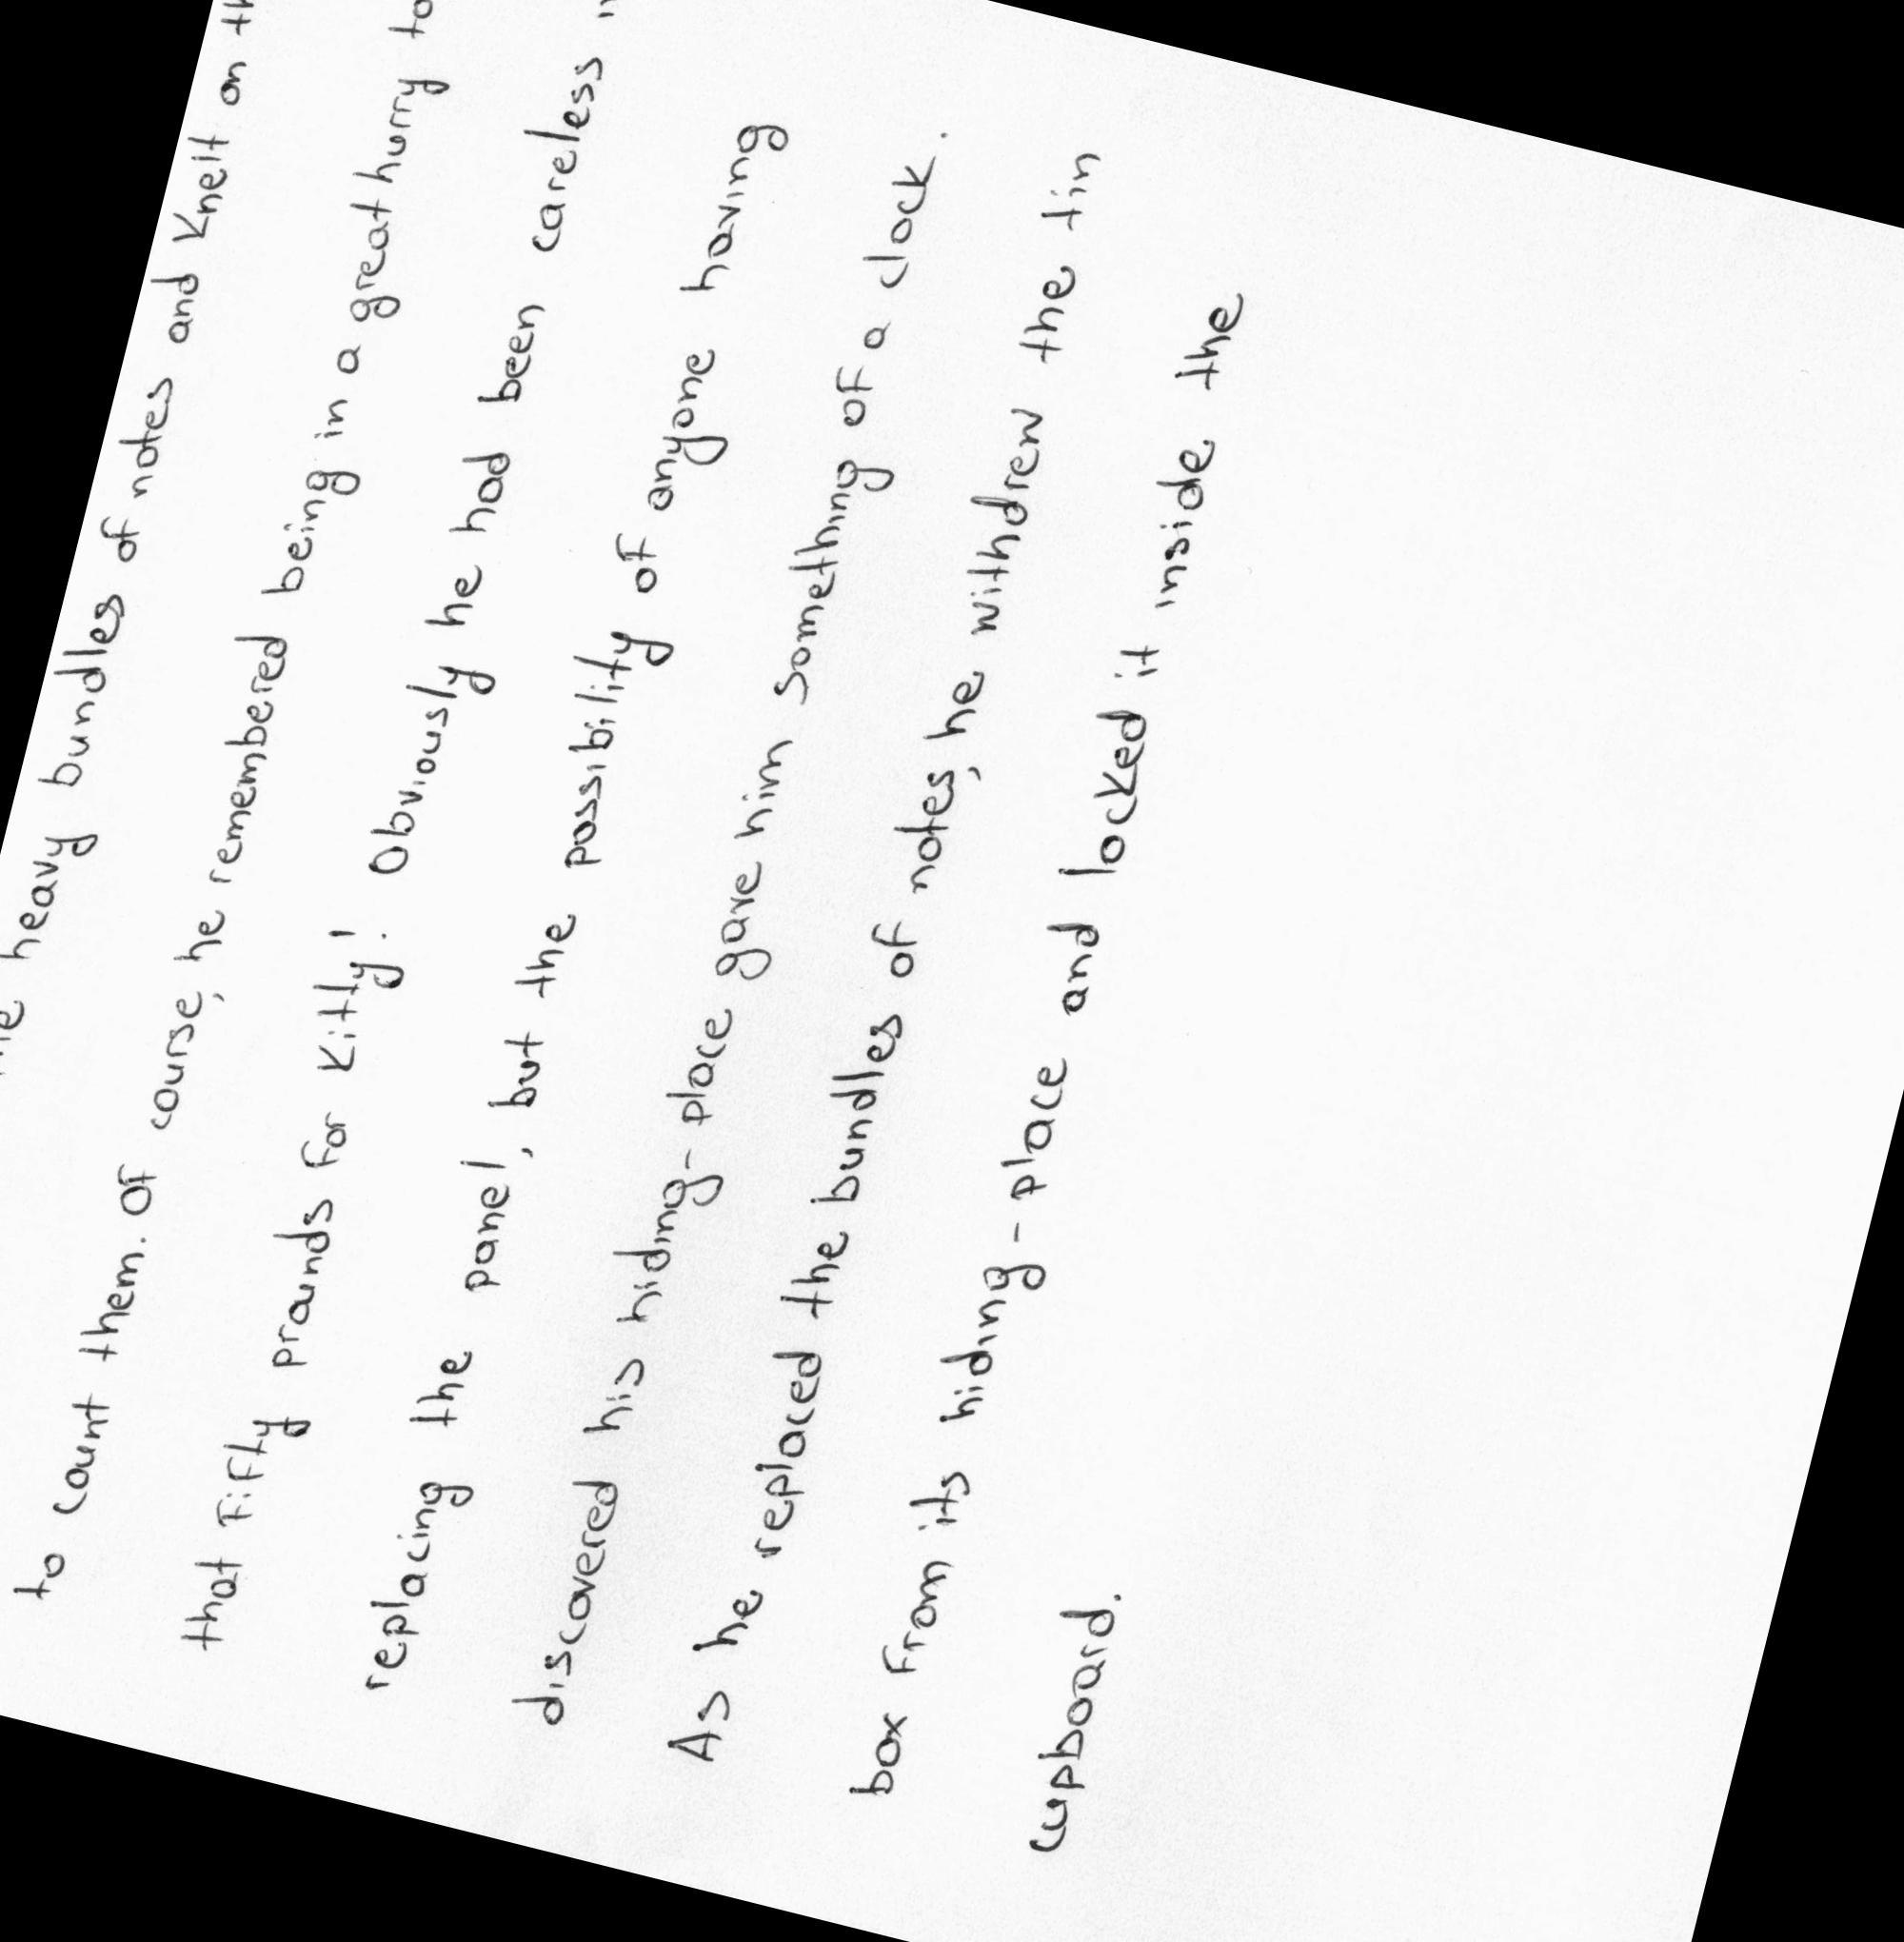 heavy bundles of notes and knelt on
to count them. Of course, he remembered being in a great hurry to
that Fifty prounds for Kitty! Obviously he had been careless
replacing the panel, but the possibility of anyone having
discovered his hiding-place gave him something of a clock.
As he replaced the bundles of notes, he withdrew the tin
box From its hiding-place and locked it inside the
cupboard.